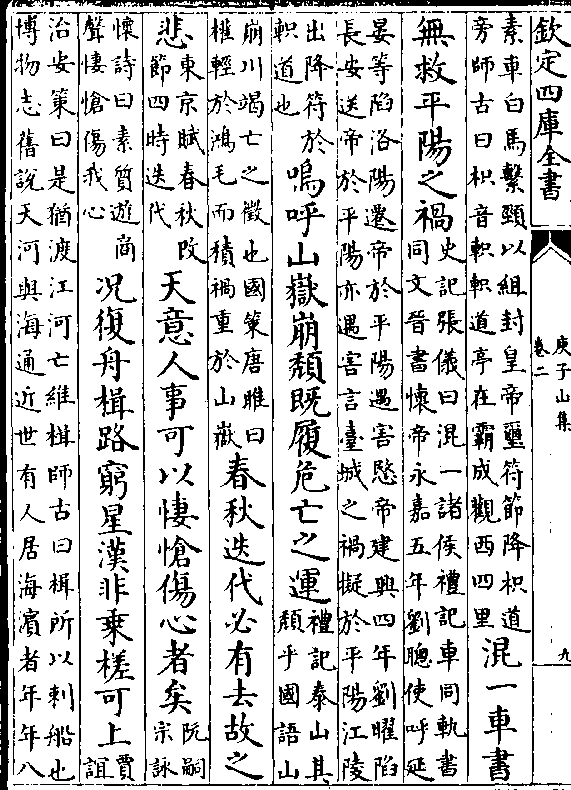 欽定四庫全書
庾子山集
卷二
九
素車白馬繫頸以組封皇帝璽符節降枳道
旁師古曰枳音軹軹道亭在霸成觀西四里
混一車書
無救平陽之禍
史記張儀曰混一諸侯禮記車同軌書
同文晉書懷帝永嘉五年劉聰使呼延
晏等陷洛陽遷帝於平陽遇害愍帝建興四年劉曜陷
長安送帝於平陽亦遇害言臺城之禍擬於平陽江陵
出降符於
軹道也
嗚呼山嶽崩頹既履危亡之運
禮記泰山其
頹乎國語山
崩川竭亡之徵也國策唐雎曰
權輕於鴻毛而積禍重於山嶽
春秋迭代必有去故之
悲
東京賦春秋改
節四時迭代
天意人事可以悽愴傷心者矣
阮嗣
宗詠
懷詩曰素質遊商
聲悽愴傷我心
况復舟楫路窮星漢非乘槎可上
賈
誼
治安策曰是猶渡江河亡維楫師古曰楫所以刺船也
博物志舊說天河與海通近世有人居海濵者年年八